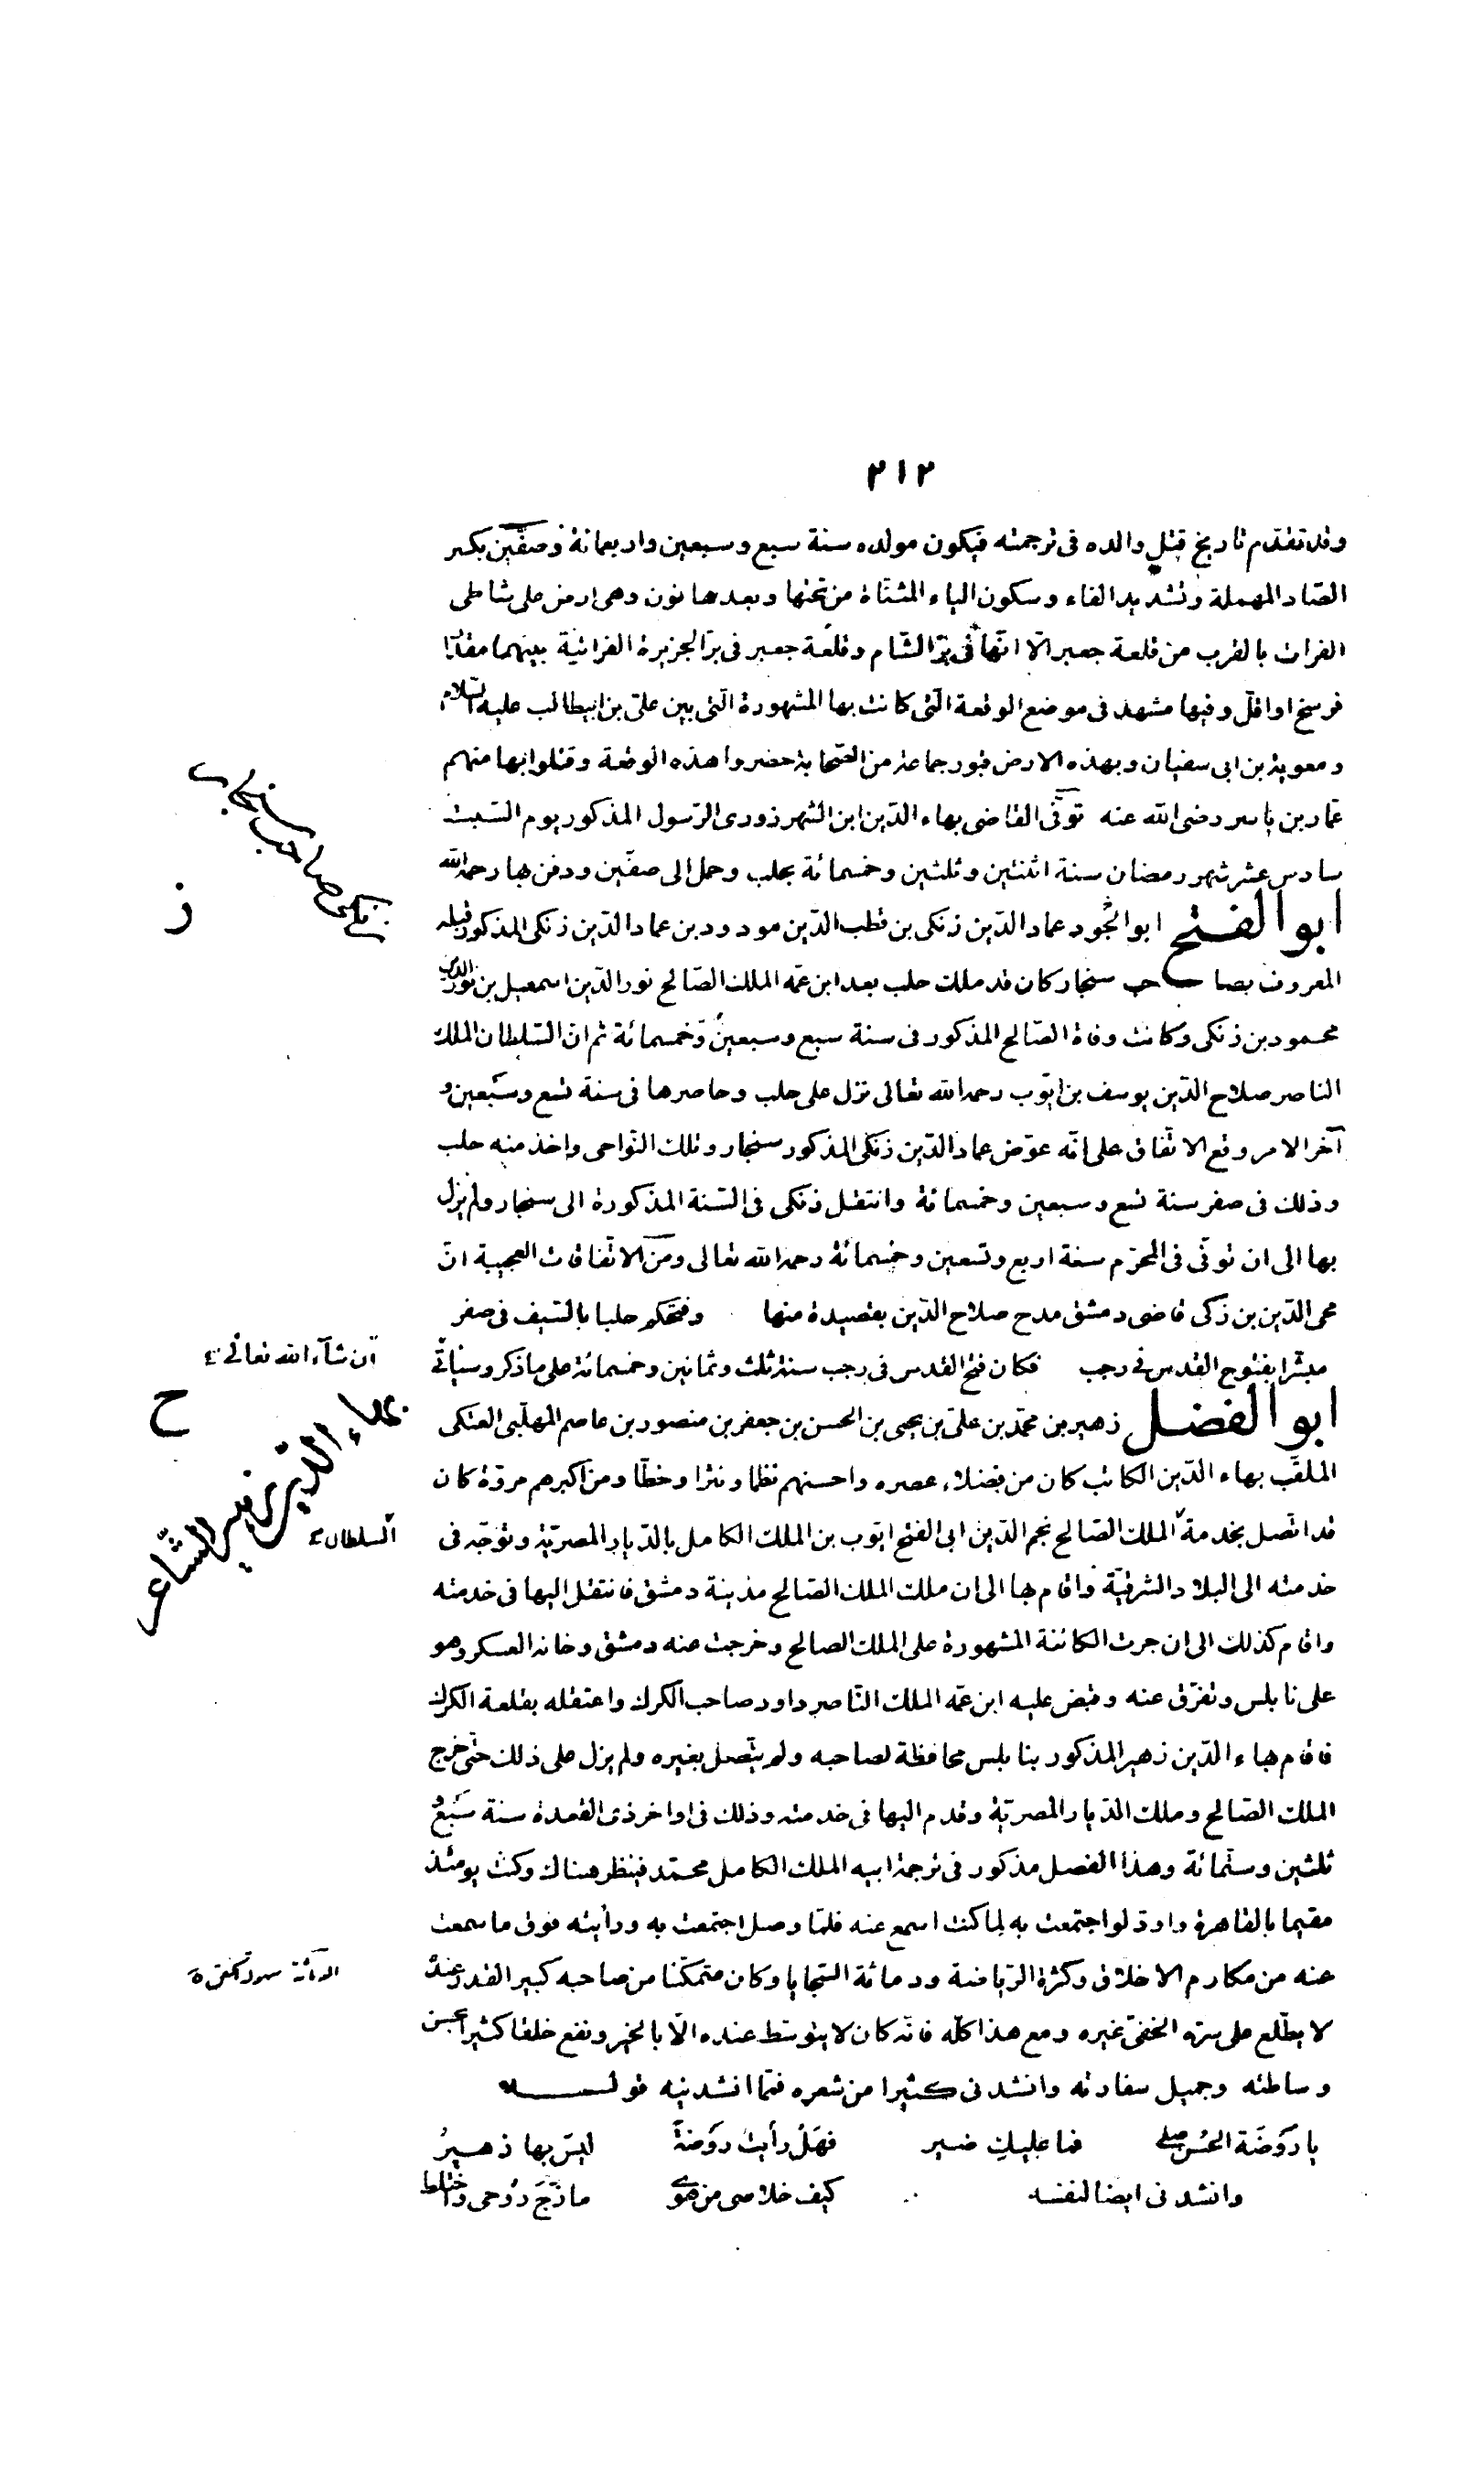 ٢١٢
وقد تقدّم تاريخ قتل والده فى ترجمته فيكون مولده سنة سبع وسبعين واربعمائة وصفّين بكسر
الصّاد المهملة وتشديد الفاء وسكون الياء المثنّاة من تحتها وبعدها نون وهى ارض على شاطى
الفرات بالقرب من قلعة جعبر الّا انّها فى برّ الشّام وقلعة جعبر فى برّ الجزيرة الفراتيّة بينهما مقدار
فرسخ او اقلّ وفيها مشهد فى موضع الوقعة الّتى كانت بها المشهورة الّتى بين علىّ بن ابيطالب عليه السّلام
ومعوية بن ابى سفيان وبهذه الارض قبور جماعة من الصّحابة حضروا هذه الوقعة وقتلوا بها منهم
عمّار بن ياسر رضى الله عنه توفّى القاضى بهاء الدّين ابن الشّهرزورى الرّسول المذكور يوم السّبت
سادس عشر شهر رمضان سنة اثنتين وثلثين وخمسمائة بحلب وحمل الى صفّين ودفن بها رحمه الله
ابو الفتح ابو الجُود عماد الدّين زنكى بن قطب الدّين مودود بن عماد الدّين زنكى المذكور قبله
المعروف بصاحب سنجار كان قد ملك حلب بعد ابن عمّه الملك الصّالح نور الدّين اسمعيل بن نور الدين
محمود بن زنكى وكانت وفاة الصّالح المذكور فى سنة سبع وسبعين وخمسمائة ثم انّ السّلطان الملك
الناصر صلاح الدّين يوسف بن ايّوب رحمه الله تعالى نزل على حلب وحاصرها فى سنة تسع وسبعين و
آخر الامر وقع الاتّفاق على انّه عوّض عماد الدّين زنكى المذكور سنجار وتلك النّواحى واخذ منه حلب
وذلك فى صفر سنة تسع وسبعين وخمسمائة وانتقل زنكى فى السّنة المذكورة الى سنجار ولم يزل
بها الى ان توفّى فى المحرّم سنة اربع وتسعين وخمسمائة رحمه الله تعالى ومن الاتّفاقات العجيبة انّ
محى الدّين بن زكى قاضى دمشق مدح صلاح الدّين بقصيدة منها وفتحكم حلبا بالسّيف فى صفر
مبشّرا بفتوح القدس فى رجب فكان فتح القدس فى رجب سنة ثلث وثمانين وخمسمائة على ما ذكر وسيأتى
ان شآء الله تعالى
ابو الفضل زهير بن محمّد بن علىّ بن يحيى بن الحسن بن جعفر بن منصور بن عاصم المهلّبى العتكى
الملقّب بهاء الدّين الكاتب كان من فضلاء عصره واحسنهم نظما ونثرا وخطّا ومن اكبرهم مروّة كان
قد اتّصل بخدمة الملك الصّالح نجم الدّين ابى الفتح ايّوب بن الملك الكامل بالدّيار المصريّة وتوجّه فى
السلطان
خدمته الى البلاد الشرقيّة واقام بها الى ان ملك الملك الصّالح مدينة دمشق فانتقل اليها فى خدمته
واقام كذلك الى ان جرت الكائنة المشهورة على الملك الصالح وخرجت عنه دمشق وخانه العسكر وهو
على نابلس وتفرّق عنه وقبض عليه ابن عمّه الملك النّاصر داود صاحب الكرك واعتقله بقلعة الكرك
فاقام بهاء الدّين زهير المذكور بنابلس محافظة لصاحبه ولم يتّصل بغيره ولم يزل على ذلك حتّى خرج
الملك الصّالح وملك الدّيار المصريّة وقدم اليها فى خدمته وذلك فى اواخر ذى القعدة سنة سَبع و
ثلثين وستّمائة وهذا الفصل مذكور فى ترجمة ابيه الملك الكامل محمّد فينظر هناك وكنت يومئذ
مقيما بالقاهرة واودّ لو اجتمعت به لما كنت اسمع عنه فلمّا وصل اجتمعت به ورأيته فوق ما سمعت
عنه من مكارم الاخلاق وكثرة الرّياضة ودماثة السّجايا وكان متمكّنا من صاحبه كبير القدر عنده
لا يطّلع على سرّه الخفىّ غيره ومع هذا كلّه فانّه كان لا يتوسّط عنده الّا بالخير ونفع خلقا كثيرا بحسن
وساطته وجميل سفارته وانشدنى كثيرا من شعره فمّا انشدنيه قوله
يا رَوضَة الحُسن صلى فما عليك ضير فهَل رأيت رَوضَةً ليسَ بها زهيرُ
وانشدنى ايضا لنفسه كيف خلاصى من هوى مازَجَ رُوحى واختلط
زنكى صاحب سنجار
ز
ح
بهاء الدّين زهير الشّاعر